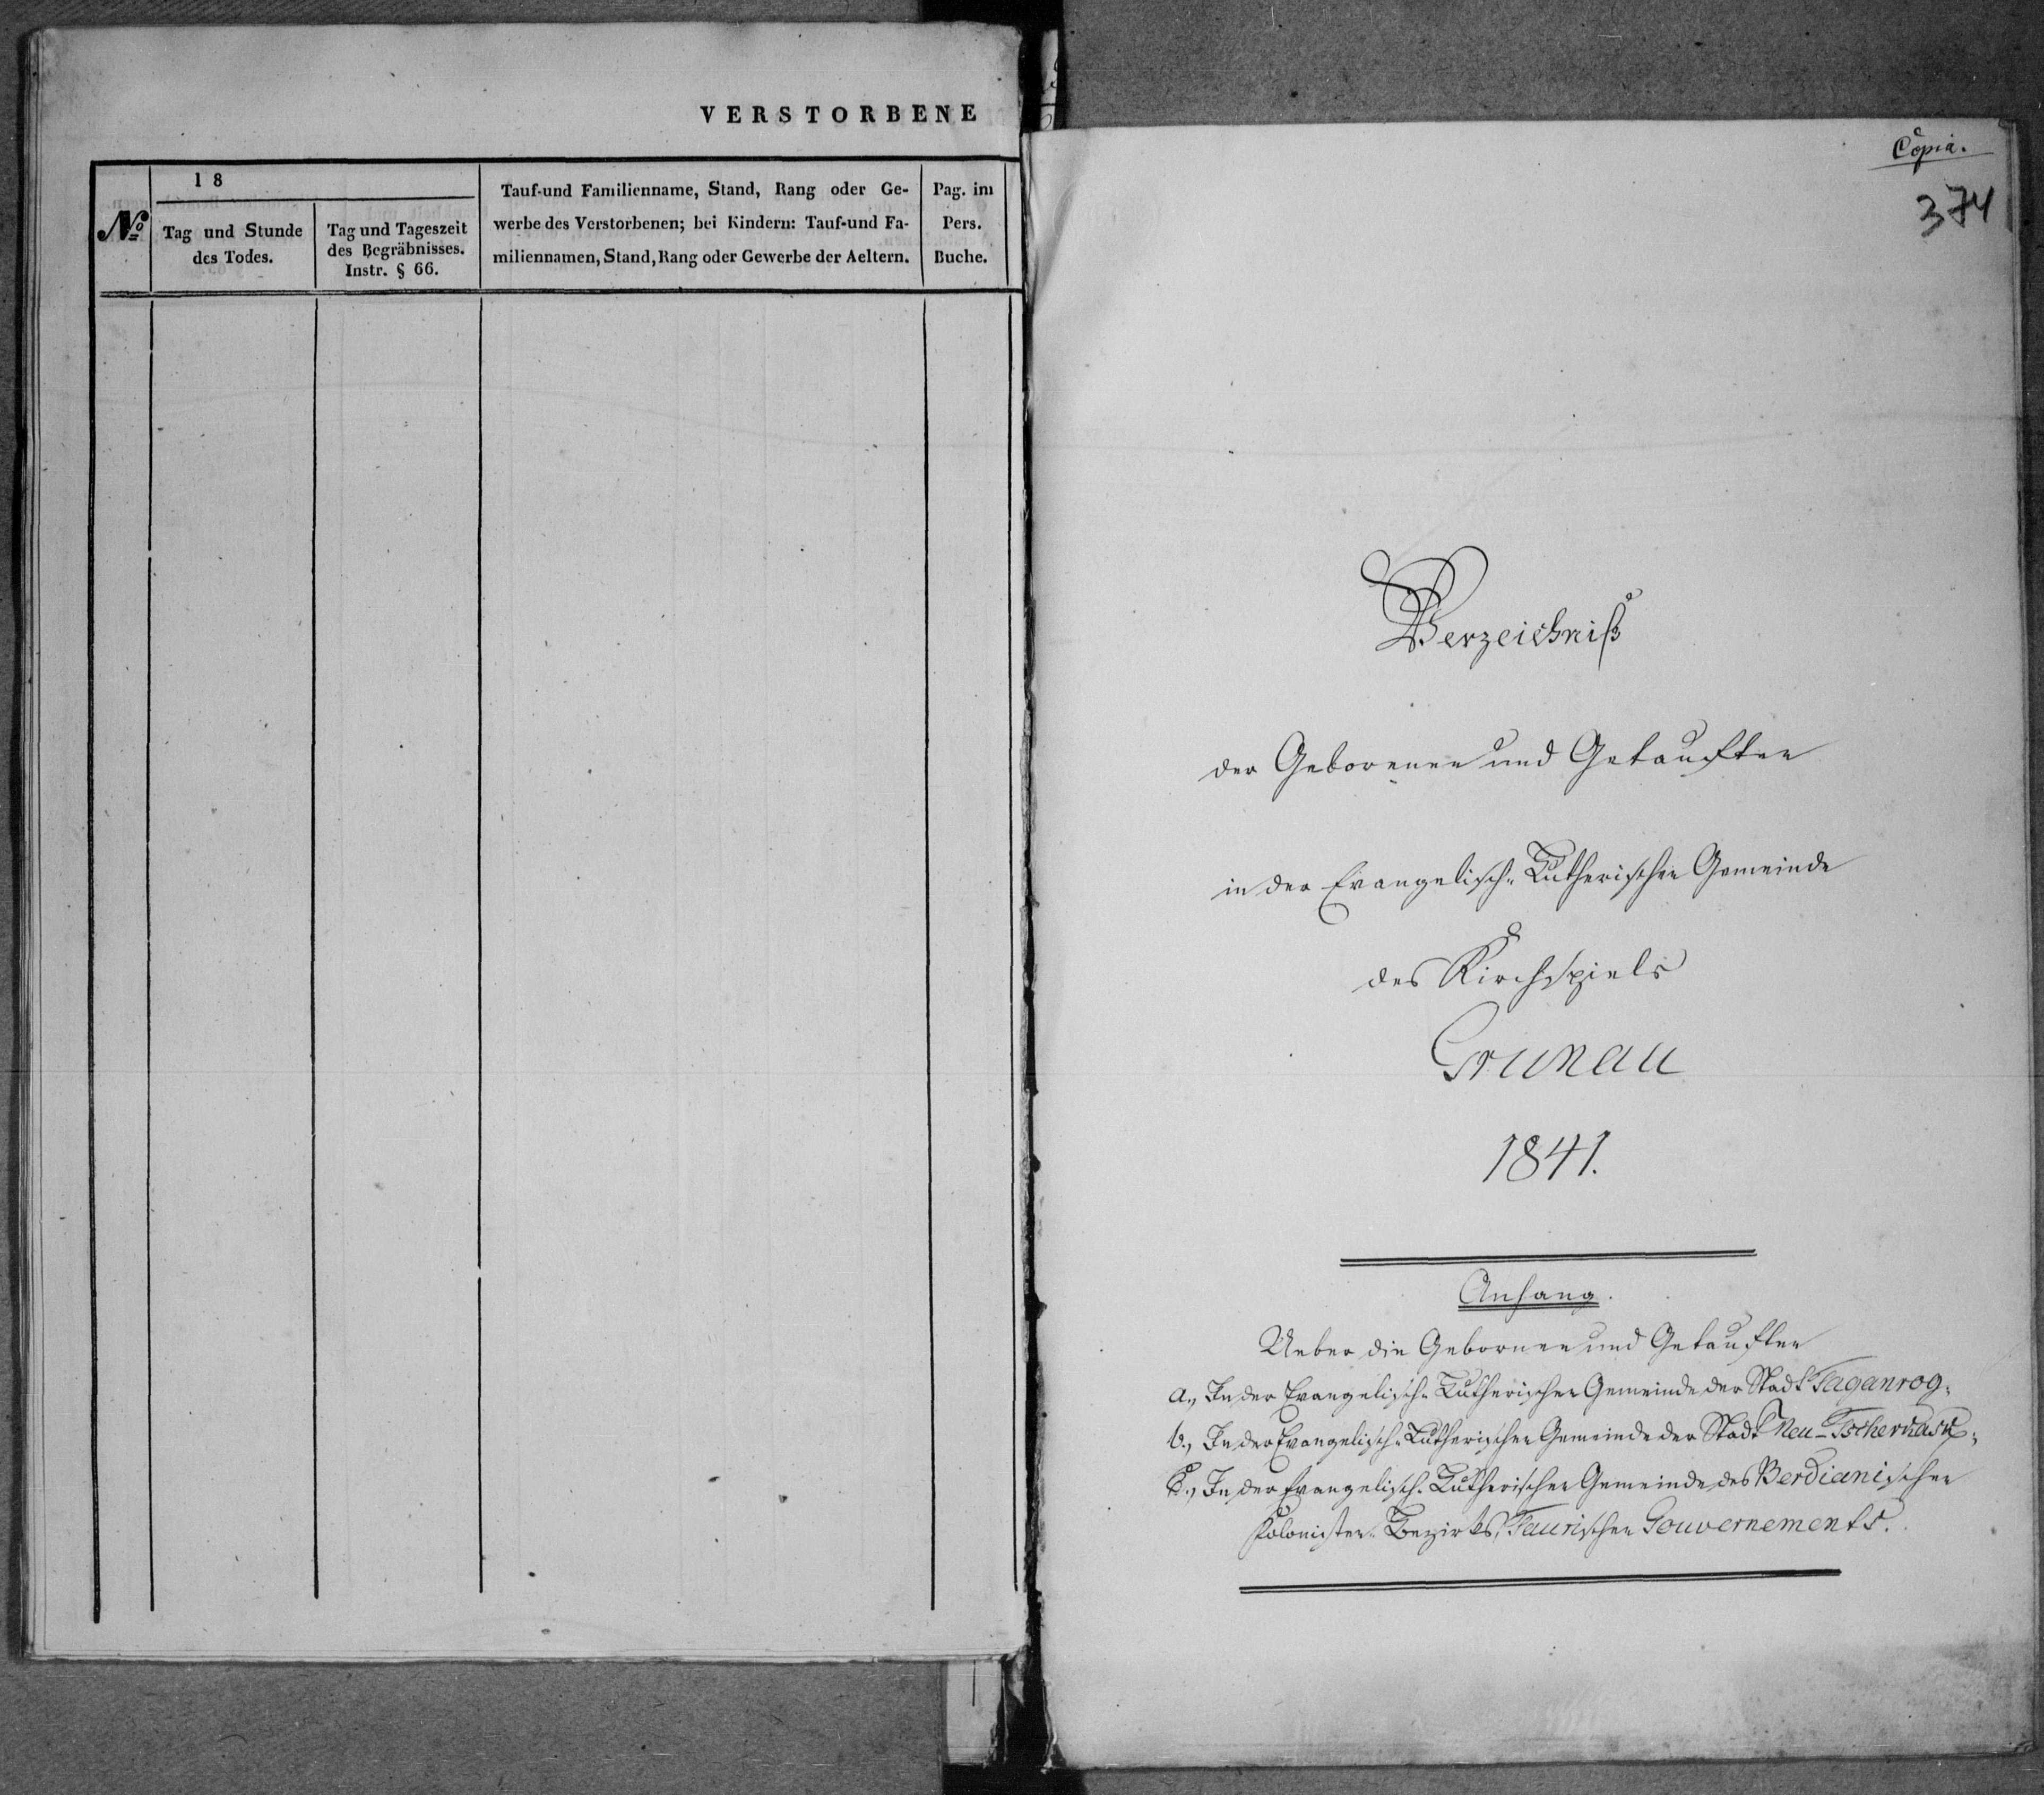 VERSTORBENE
18
№
Tag und Stunde
des Todes.
Tag und Tageszeit
des Begräbnisses.
Instr. § 66.
Tauf-und Familienname, Stand, Rang oder Ge-
werbe des Verstorbenen; bei Kindern: Tauf-und Fa-
miliennamen, Stand, Rang oder Gewerbe der Aeltern.
Pag. im
Pers.
Buche.
Copia.
374
Verzeichniß
der Geborenen und Getauften
in der Evangelisch-Lutherischen Gemeinde
des Kirchspiels
Grunau
1841.
Anhang.
Ueber die Gebornen und Getauften
a., In der Evangelisch-Lutherischen Gemeinde der Stadt Taganrog,
b., In der Evangelisch-Lutherischen Gemeinde der Stadt Neu-Tscherkask,
c., In der Evangelisch-Lutherischen Gemeinde des Berdianischen
Colonisten-Bezirks, Taurischen Gouvernements.